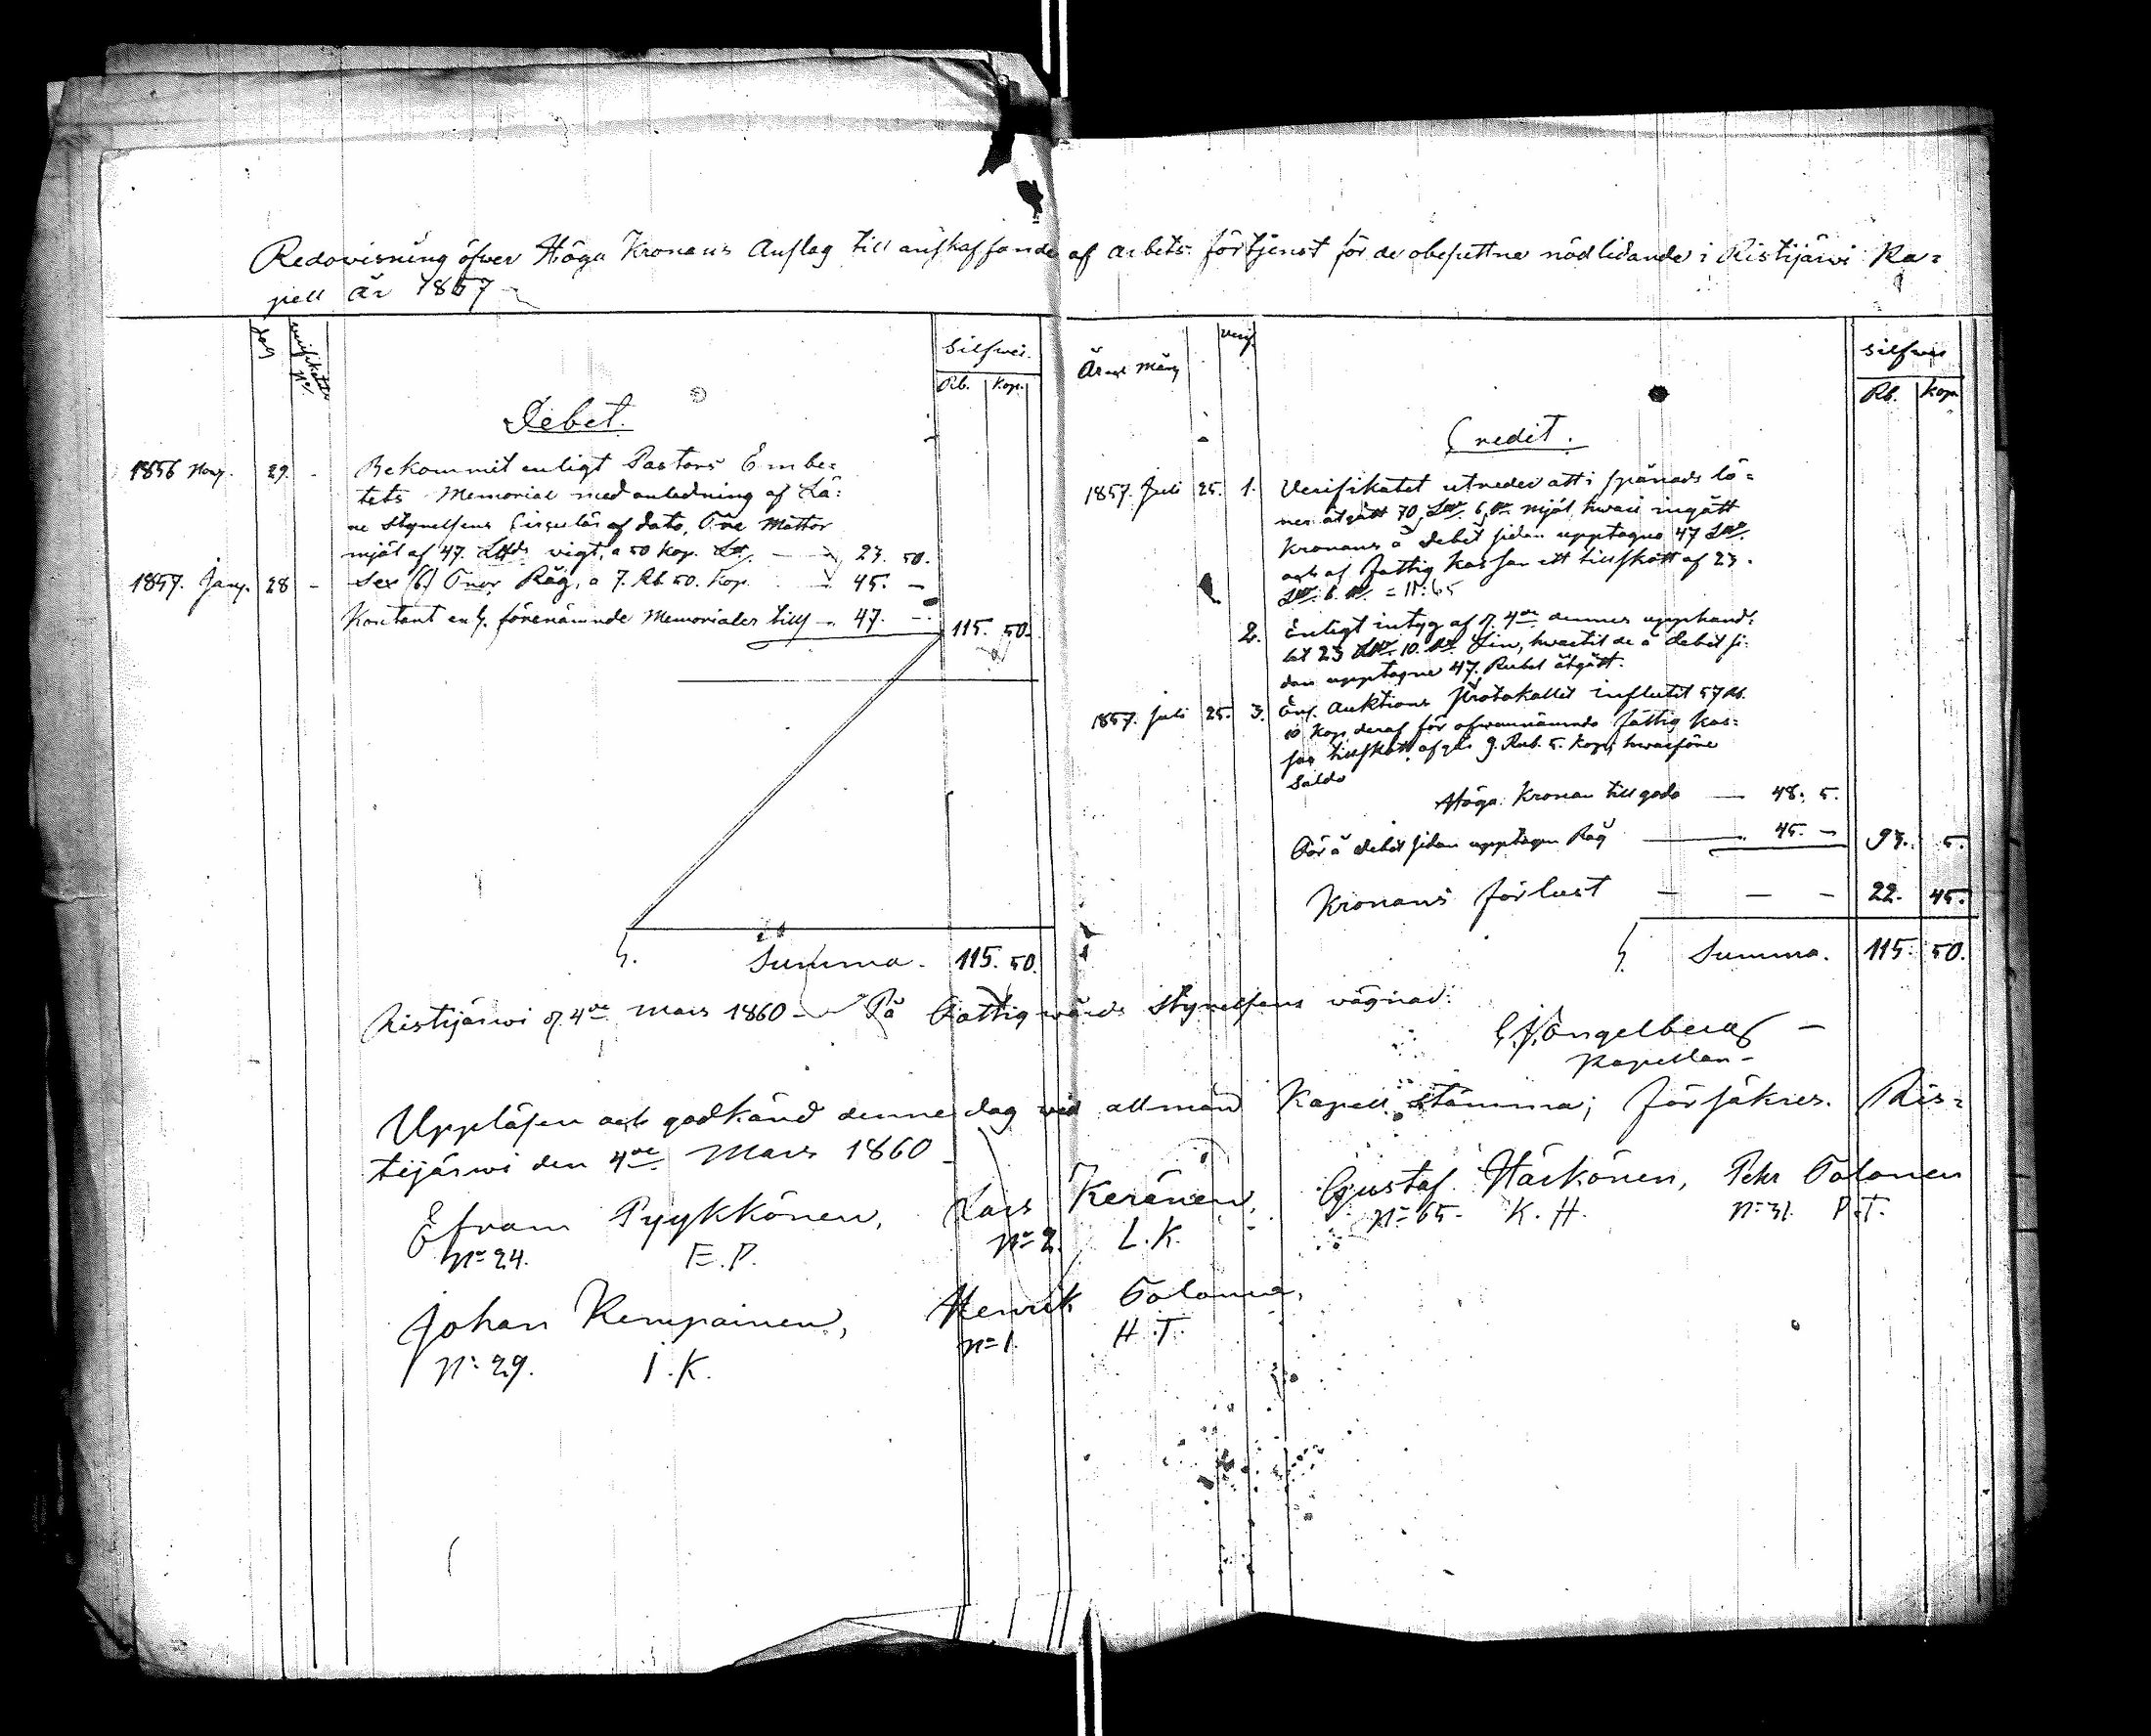 Redovisning öfver Höga Kronans Anslag till anskaffande af arbets förtjenst för de obesuttne nödlidande i Ristijärvi Ka=
pell år 1857
Dag
verifikation No
Silfwer.
Rb. Kop.
Debet.
1856 Nov. 29. - Bekommit enligt Pastors Embe=
tets Memorial med anledning af Lä=
ne Styrelsens Circulär af dato, Tre Mattor
mjöl af 47. L℔ds vigt, a 50 Kop. L℔. 23. 50.
1857. Jany. 28 - Sex (6) Tnor Råg, a 7. Rb 50. Kop. 45. -
Kontant enl. förenämnde Memorialer till 47. - 115. 50.
S. Summa. 115. 50.
År och Mång
Verif.
Silfwer
Rb. Kop
Credit.
1857. Juli 25. 1. Verifikatet utreder att i spånads lö=
ner åtgått 70 L℔. 6 ℔. mjöl, hwari ingått
Kronans å debet sidan upptagne 47 L℔.
och af Fattig Kassan ett tillskott af 23.
L℔. 6. ℔. = 11: 65
2. Enligt intyg af d. 4de dennes upphand=
lat 23 L℔. 10. ℔. Lin, hwartil de å debet si=
dan upptagne 47. Rubel åtgått.
1857. Juli 25. 3. Enl. Auktions Protokollet influtit 57 Rb.
10 Kop, deraf för ofwannämnde Fattig Kas=
sas tillskott afgår 9. Rub. 5. Kop, hwarföre
Saldo
Höga Kronan till godo 48. 5.
För å debet sidan upptagen Råg 45. - 93. 5.
Kronans förlust - - - 22. 45.
S. Summa. 115. 50.
Ristijärwi d. 4de Mars 1860 - På Fattigwårds Styrelsens wägnar:
C. J. Engelberg -
Kapellan -
Uppläsen och godkänd denne dag wid allmän Kapell stämma; försäkres. Ris=
tijärwi den 4de Mars 1860
Efraim Pyykkönen, Lars Keränen, Gustaf Härkönen, Pehr Tolonen
No 24. E. P. No 2. L. K. No 65. K. H. No 31. P. T.
Johan Kempainen, Henrik Tolonen,
No 29. I. K. No 1. H. T.